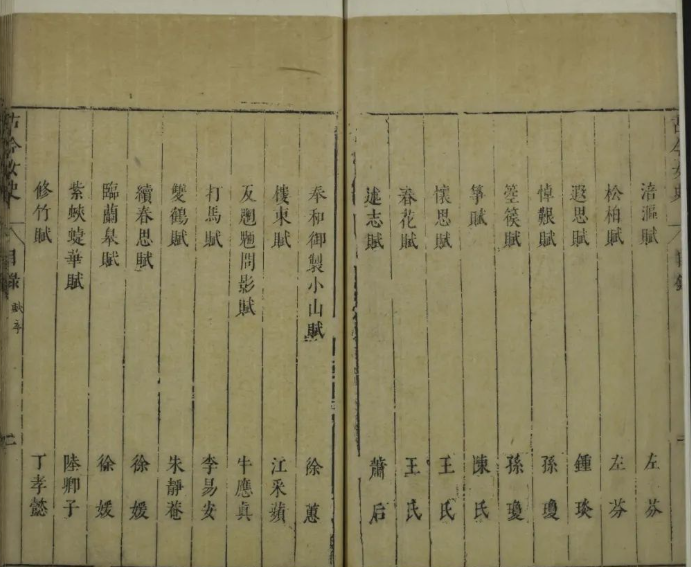 涪漚賦 左芬
松柏賦 左芬
遐思賦 鍾琰
悼艱賦 孫瓊
箜篌賦 孫瓊
箏賦 陳氏
懷思賦 王氏
春花賦 王氏
述志賦 蕭后
奉和御製小山賦 徐蕙
樓東賦 江采蘋
反魍魎問影賦 牛應真
打馬賦 李易安
雙鶴賦 朱靜菴
續春思賦 徐媛
臨蘭皋賦 徐媛
紫蛺蜨華賦 陸卿子
修竹賦 丁孝懿
古今女史 目錄 二